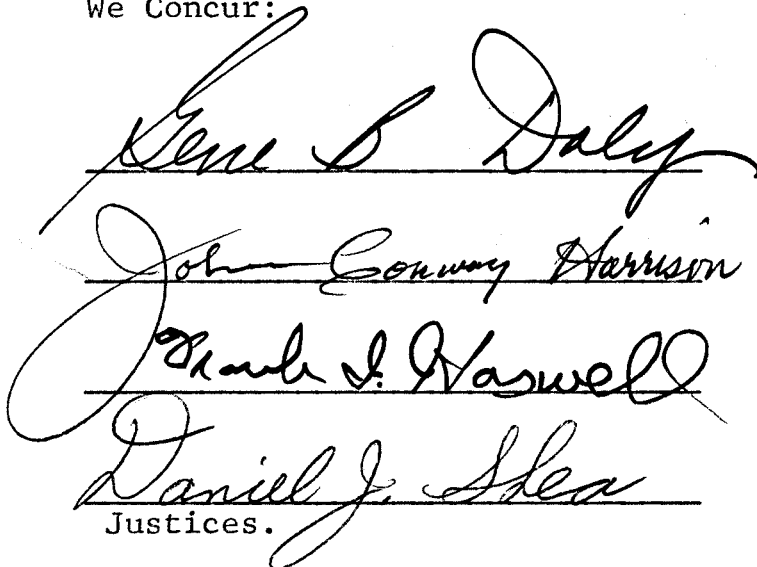 We Concur:
Gene B Daly
John Conway Harrison
Frank I. Haswell
Daniel J. Shea
Justices.